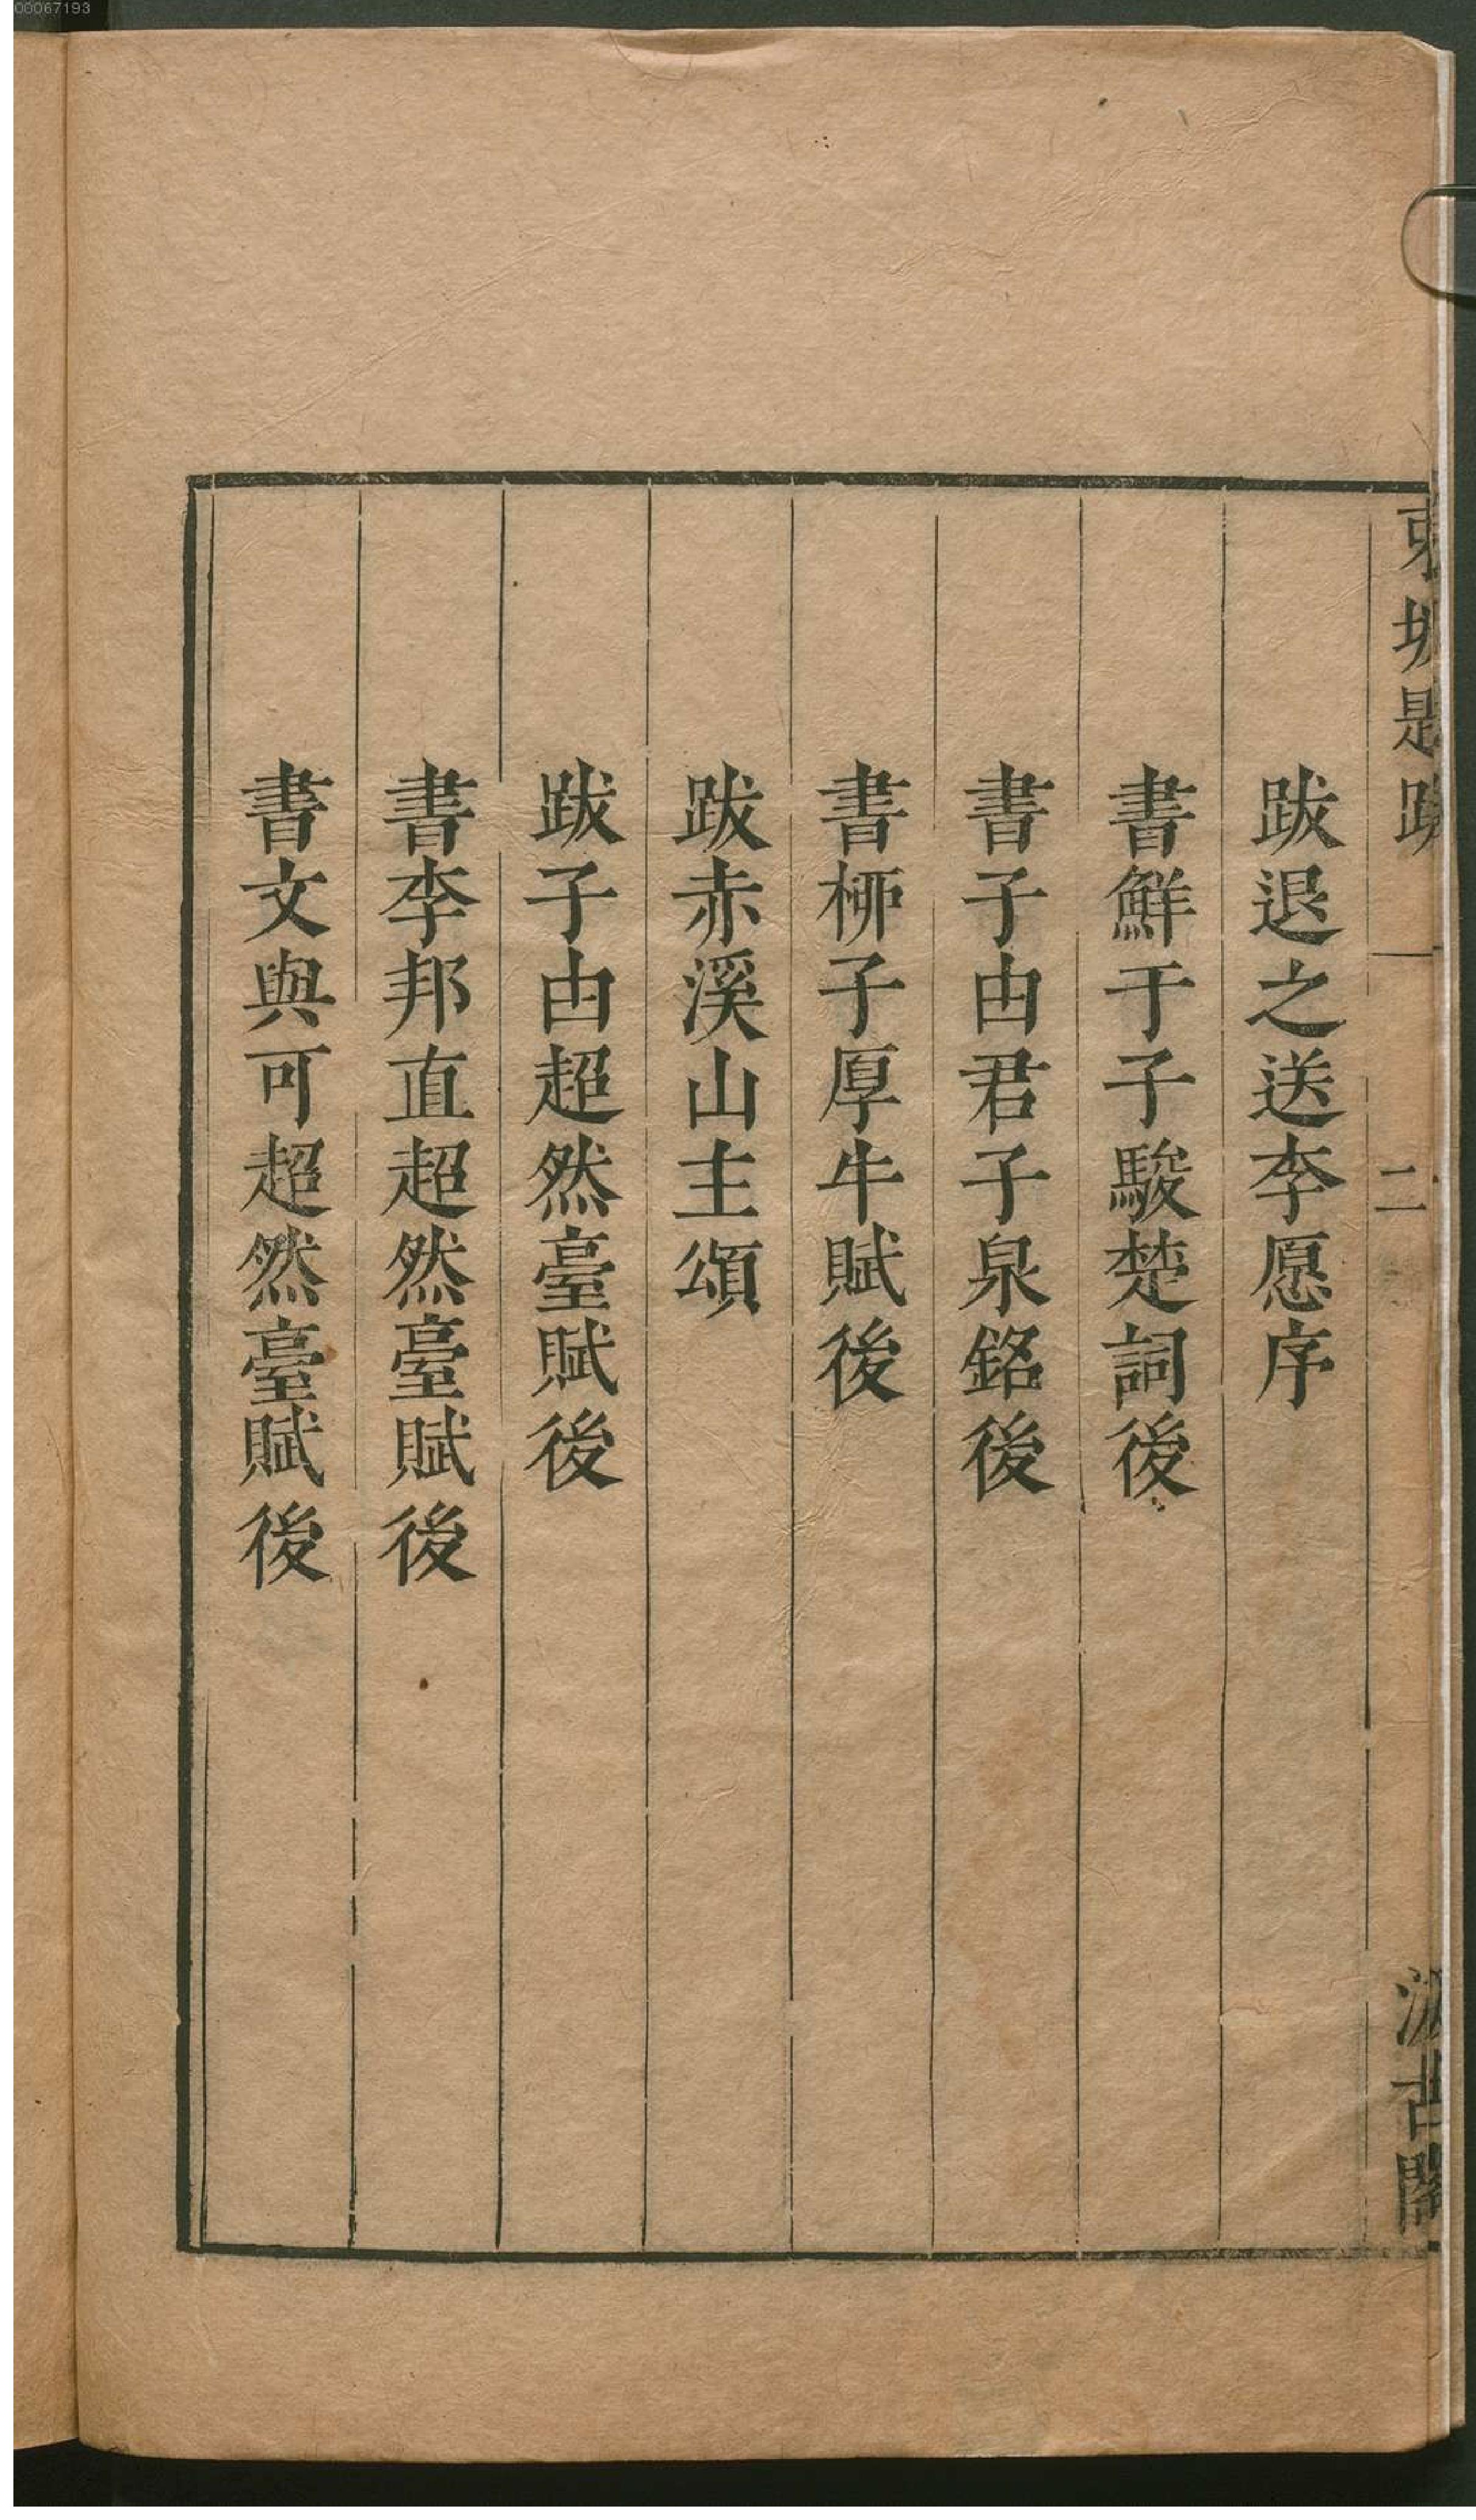 00067193
東坡題跋
二
汲古閣
跋退之送李愿序
書鮮于子駿楚詞後
書子由君子泉銘後
書栁子厚牛賦後
跋赤溪山主頌
跋子由超然臺賦後
書李邦直超然臺賦後
書文與可超然臺賦後